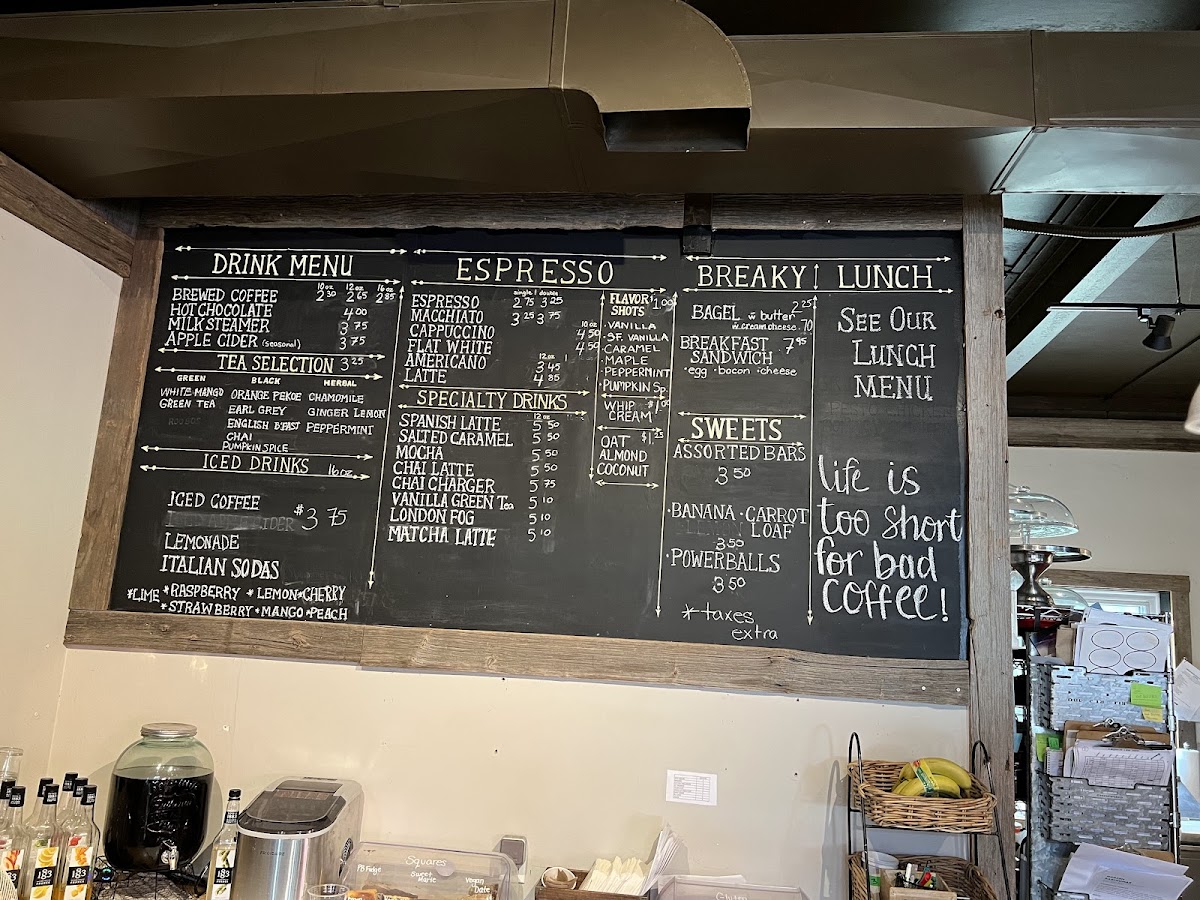 DRINK MENU
10oz 12oz 16oz
BREWED COFFEE 2.30 2.65 2.85
HOT CHOCOLATE 4.00
MILK STEAMER 3.75
APPLE CIDER (seasonal) 3.75
TEA SELECTION 3.25
GREEN BLACK HERBAL
WHITE MANGO ORANGE PEKOE CHAMOMILE
GREEN TEA EARL GREY GINGER LEMON
ROOBOS ENGLISH B'FAST PEPPERMINT
CHAI
PUMPKIN SPICE
ICED DRINKS 16oz
ICED COFFEE
CIDER $3.75
LEMONADE
ITALIAN SODAS
*LIME *RASPBERRY *LEMON *CHERRY
*STRAWBERRY *MANGO *PEACH
ESPRESSO
single | double
ESPRESSO 2.75 3.25
MACCHIATO 3.25 3.75
10oz
CAPPUCCINO 4.50
FLAT WHITE 4.50
12oz
AMERICANO 3.45
LATTE 4.85
SPECIALTY DRINKS
12oz
SPANISH LATTE 5.50
SALTED CARAMEL 5.50
MOCHA 5.50
CHAI LATTE 5.50
CHAI CHARGER 5.75
VANILLA GREEN Tea 5.10
LONDON FOG 5.10
MATCHA LATTE 5.10
FLAVOR SHOTS $1.00
·VANILLA
·SF. VANILLA
·CARAMEL
·MAPLE
·PEPPERMINT
·PUMPKIN Sp.
WHIP CREAM $1.00
OAT $1.25
ALMOND
COCONUT
BREAKY
BAGEL w butter 2.25
w cream cheese .70
BREAKFAST SANDWICH 7.95
·egg ·bacon ·cheese
SWEETS
ASSORTED BARS
3.50
·BANANA ·CARROT
LOAF
3.50
·POWERBALLS
3.50
*taxes
extra
LUNCH
SEE OUR
LUNCH
MENU
life is
too short
for bad
coffee!
183
183
183
183
Squares
PB Fudge
Sweet Marie
Vegan
Date